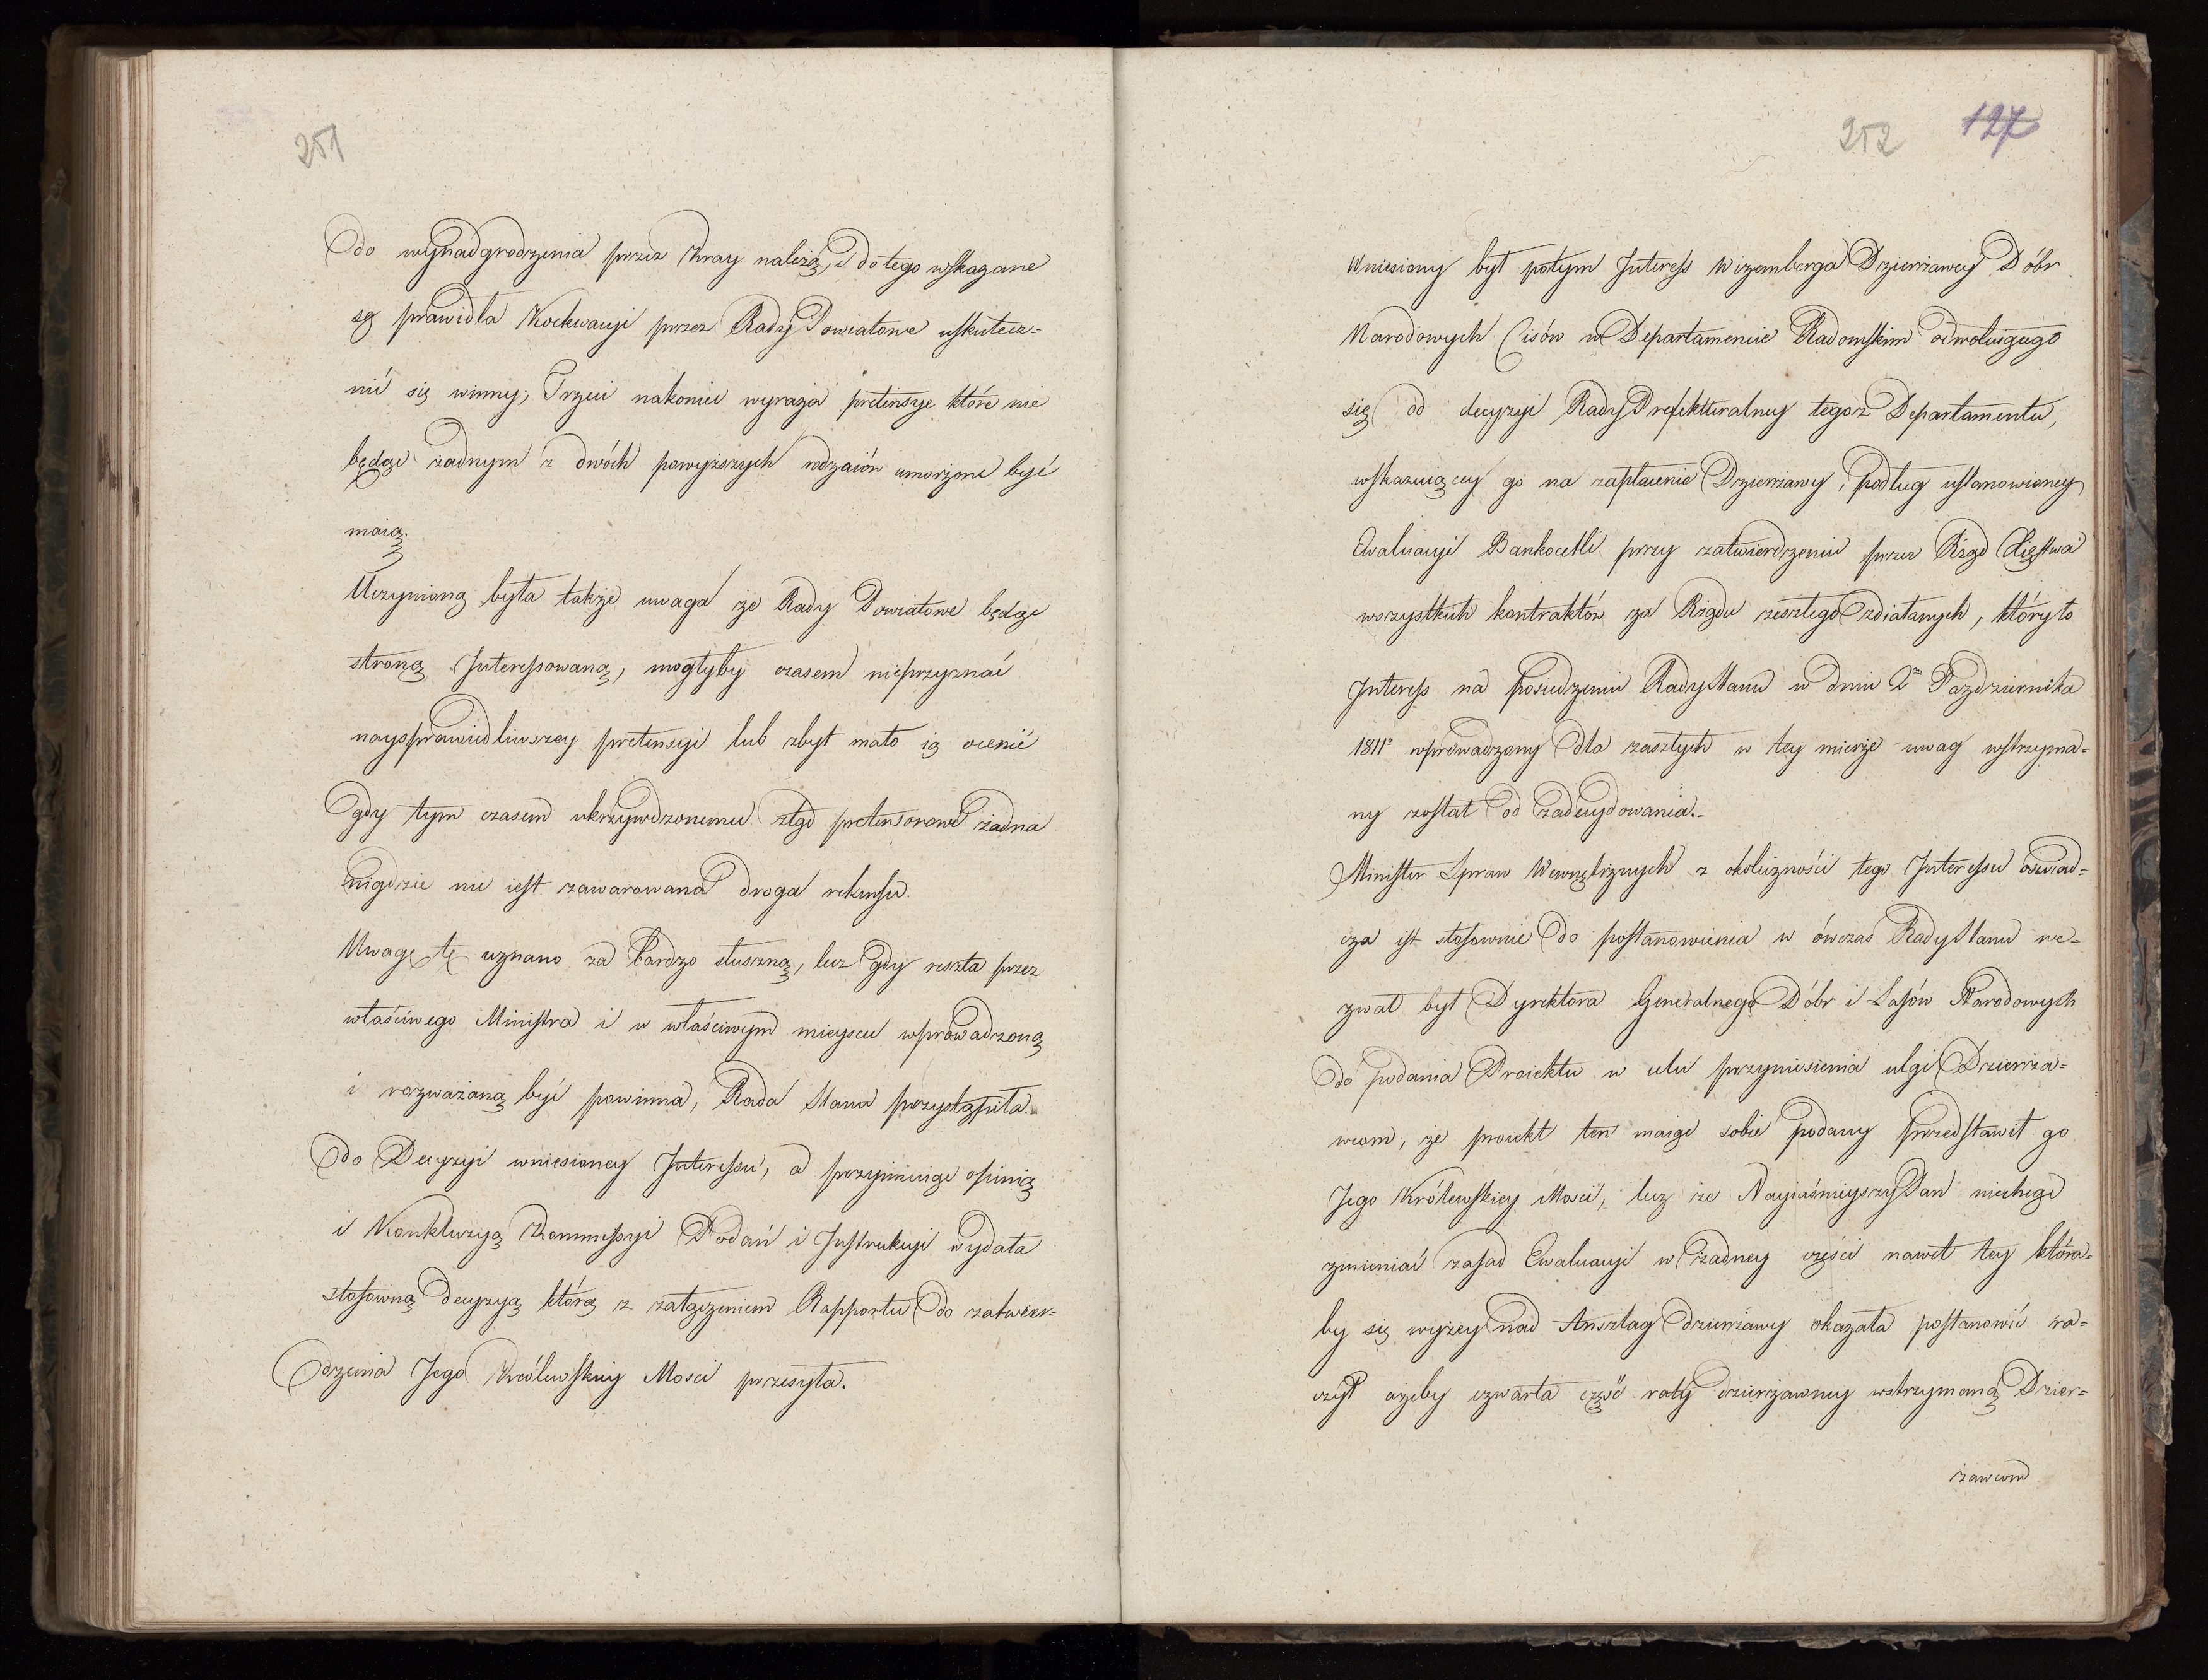 251
do wynadgrodzenia przez Kray należą, i do tego wskazane
są prawidła Koekwacyi przez Rady Powiatowe uskutecz=
nić się winney; Trzeci nakoniec wyraża pretensye które nie
będąc żadnym z dwóch powyższych rodzaiów umorzone być
maią.
Uczynioną była także uwaga że Rady Powiatowe będąc
stroną Interessowaną, mogłyby czasem nieprzyznać
naysprawiedliwszey pretensyi lub zbyt mało ią ocenić
gdy tym czasem ukrzywdzonemu ztąd pretensorowi żadna
nigdzie nie iest zawarowana droga rekursu.
Uwagę tę uznano za bardzo słuszną, lecz gdy reszta przez
właściwego Ministra i w właściwym mieyscu wprowadzoną
i rozważaną być powinna, Rada Stanu przystąpiła
do Decyzyi wniesioney Interessu, a przyimuiąc opinią
i Konkluzyą Kommissyi Podań i Instrukcyi wydała
stosowną decyzyą którą z załączeniem Rapportu do zatwier=
dzenia Jego Królewskiey Mosci przesyła.
252 127
Wniesiony był potym Interess Wizemberga Dzierżawcy Dóbr
Narodowych Cisów w Departamencie Radomskim odwołuiącego
się od decyzyi Rady Prefekturalney tegoż Departamentu,
wskazuiącey go na zapłacenie Dzierżawy, podług ustanowioney
Ewaluacyi Bankocetli przy zatwierdzeniu przez Rząd Xięstwa
wszystkich kontraktów za Rządu zeszłego zdziałanych, który to
Interess na posiedzeniu Rady Stanu w dniu 2 Pazdziernika
1811 wprowadzony dla zaszłych w tey mierze uwag wstrzyma=
ny został od zadecydowania.-
Minister Spraw Wewnętrznych z okoliczności tego Interessu oświad=
cza iż stosownie do postanowienia w ówczas Rady Stanu we=
zwał był Dyrektora Generalnego Dóbr i Lasów Narodowych
do podania Proiektu w celu przyniesienia ulgi Dzierża=
wcom, że proiekt ten maiąc sobie podany przedstawił go
Jego Królewskiey Mosci, lecz że Nayiaśnieyszy Pan niechcąc
zmieniać zasad Ewaluacyi w żadney części nawet tey która=
by się wyżey nad Ansztag dzierżawy okazała postanowić ra=
czył ażeby czwarta część raty dzierżawney wstrzymaną Dzier=
żawcom